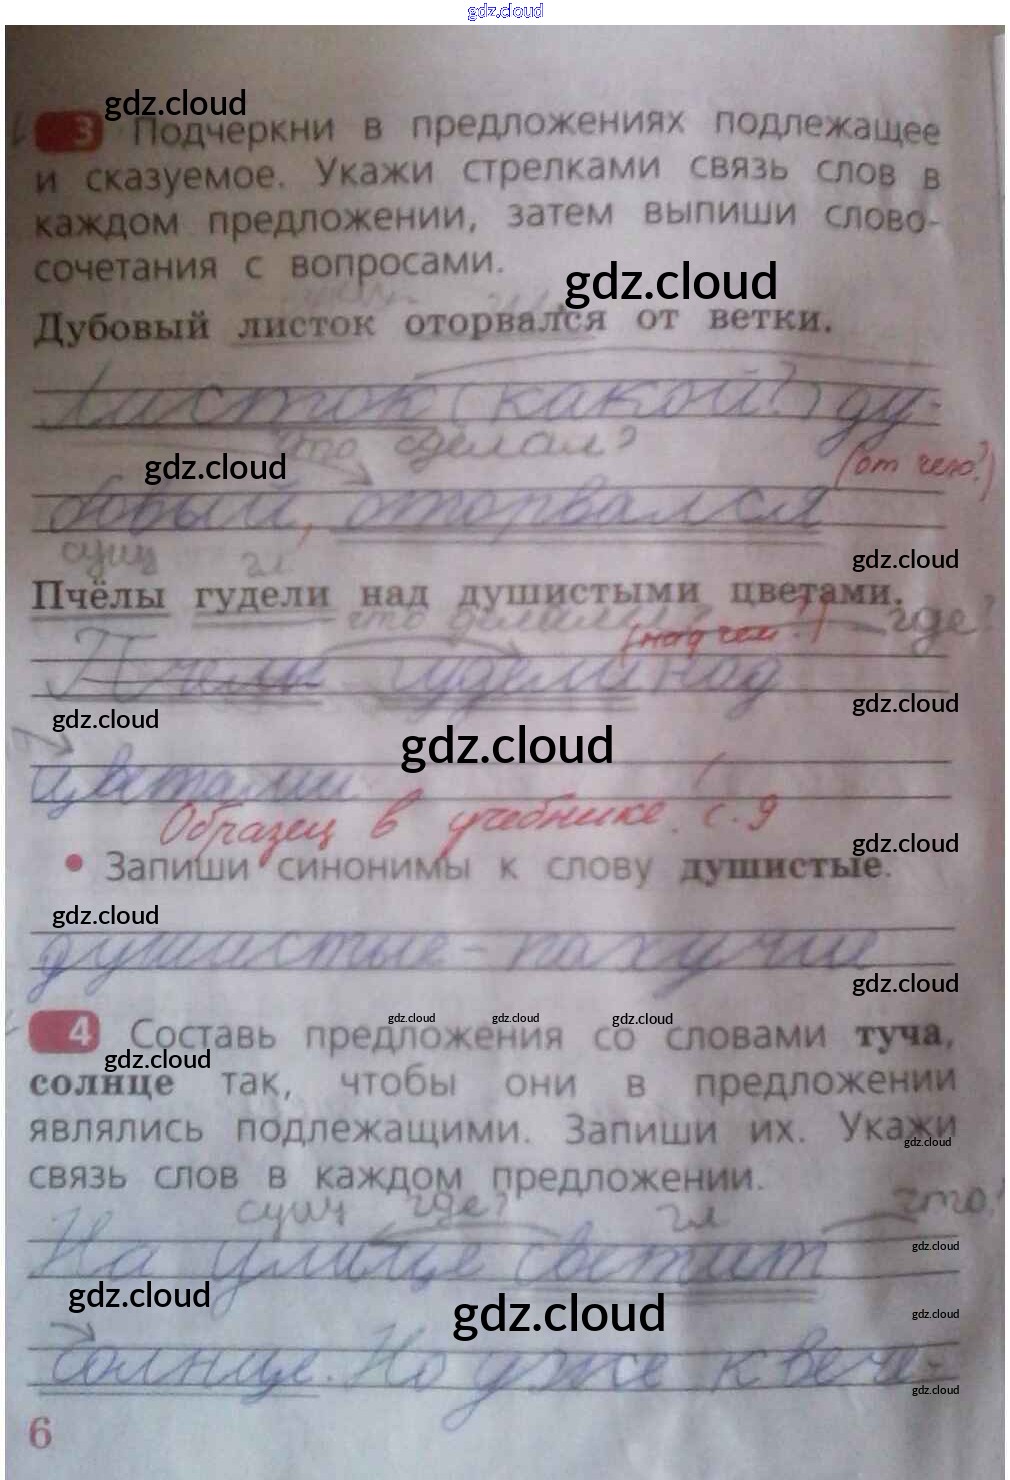 gdz.cloud
gdz.cloud
3 Подчеркни в предложениях подлежащее
и сказуемое. Укажи стрелками связь слов в
каждом предложении, затем выпиши слово-
сочетания с вопросами.
gdz.cloud
Дубовый листок оторвался от ветки.
Листок (какой?) ду-
что сделал?
gdz.cloud
(от чего?)
бовый, оторвался
gdz.cloud
сущ гл.
Пчёлы гудели над душистыми цветами.
что делали? где?
(над чем?)
Пчелы гудели над
gdz.cloud
gdz.cloud
gdz.cloud
цветами
Образец в учебнике. с. 9
gdz.cloud
• Запиши синонимы к слову душистые.
gdz.cloud
душистые - пахучие
gdz.cloud
gdz.cloud gdz.cloud gdz.cloud
4 Составь предложения со словами туча,
gdz.cloud
солнце так, чтобы они в предложении
являлись подлежащими. Запиши их. Укажи
gdz.cloud
связь слов в каждом предложении.
сущ где? гл что?
На улице светит
gdz.cloud
gdz.cloud
gdz.cloud
gdz.cloud
солнце. Но уже к вече-
gdz.cloud
6